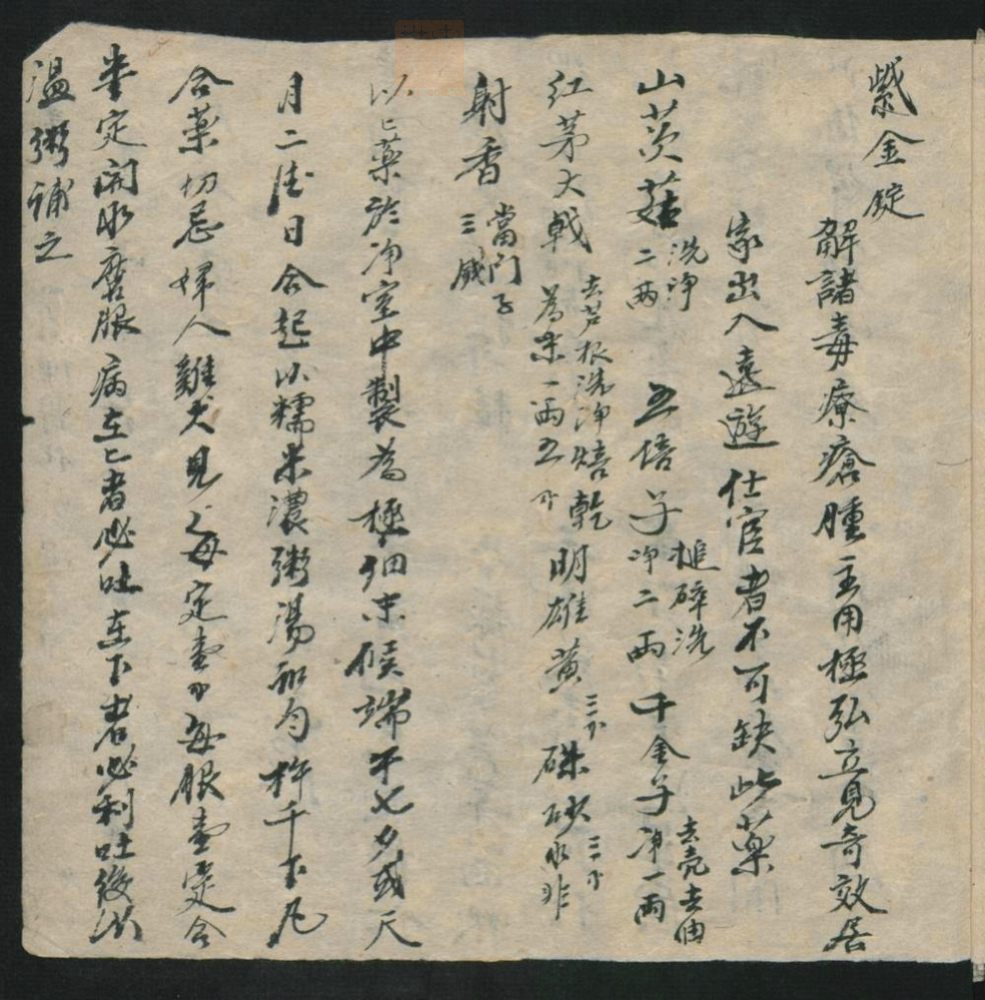 紫金錠
解諸毒療瘡腫主用極弘立見奇效居
家出入遠遊仕宦者不可缺此藥
山茨菇洗淨二兩 五倍子槌碎洗淨二兩 千金子去壳去油淨一兩
红茅大戟去芦根洗淨焙乾為末一兩五 明雄黃三 硃砂水非三
射香當門子三
以上藥於净室中製為極细末候端午七夕或天
月二德日合起以糯米濃粥湯和匀杵千下凡
合藥切忌婦人雞犬見之每定壹 每服壹定合
半定開水磨服病在上者必吐在下者必利吐後以
温粥補之